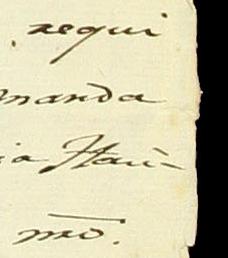 requi
manda
ia Itaú-
mo.